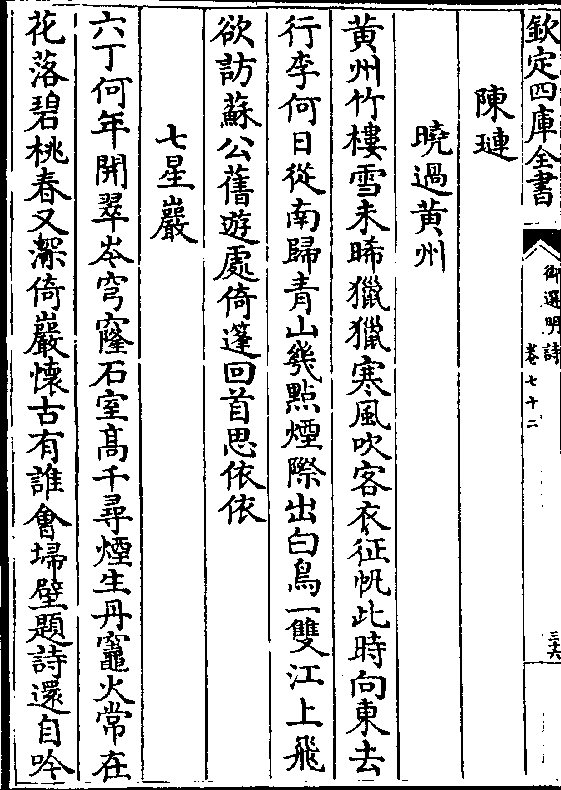 欽定四庫全書
御選明詩
卷七十二
三六
陳璉
曉過黃州
黃州竹樓雪未晞獵獵寒風吹客衣征帆此時向東去
行李何日從南歸青山幾點煙際出白鳥一雙江上飛
欲訪蘇公舊遊處倚篷回首思依依
七星巖
六丁何年開翠岑穹窿石室髙千尋煙生丹竈火常在
花落碧桃春又深倚巖懷古有誰會埽壁題詩還自吟